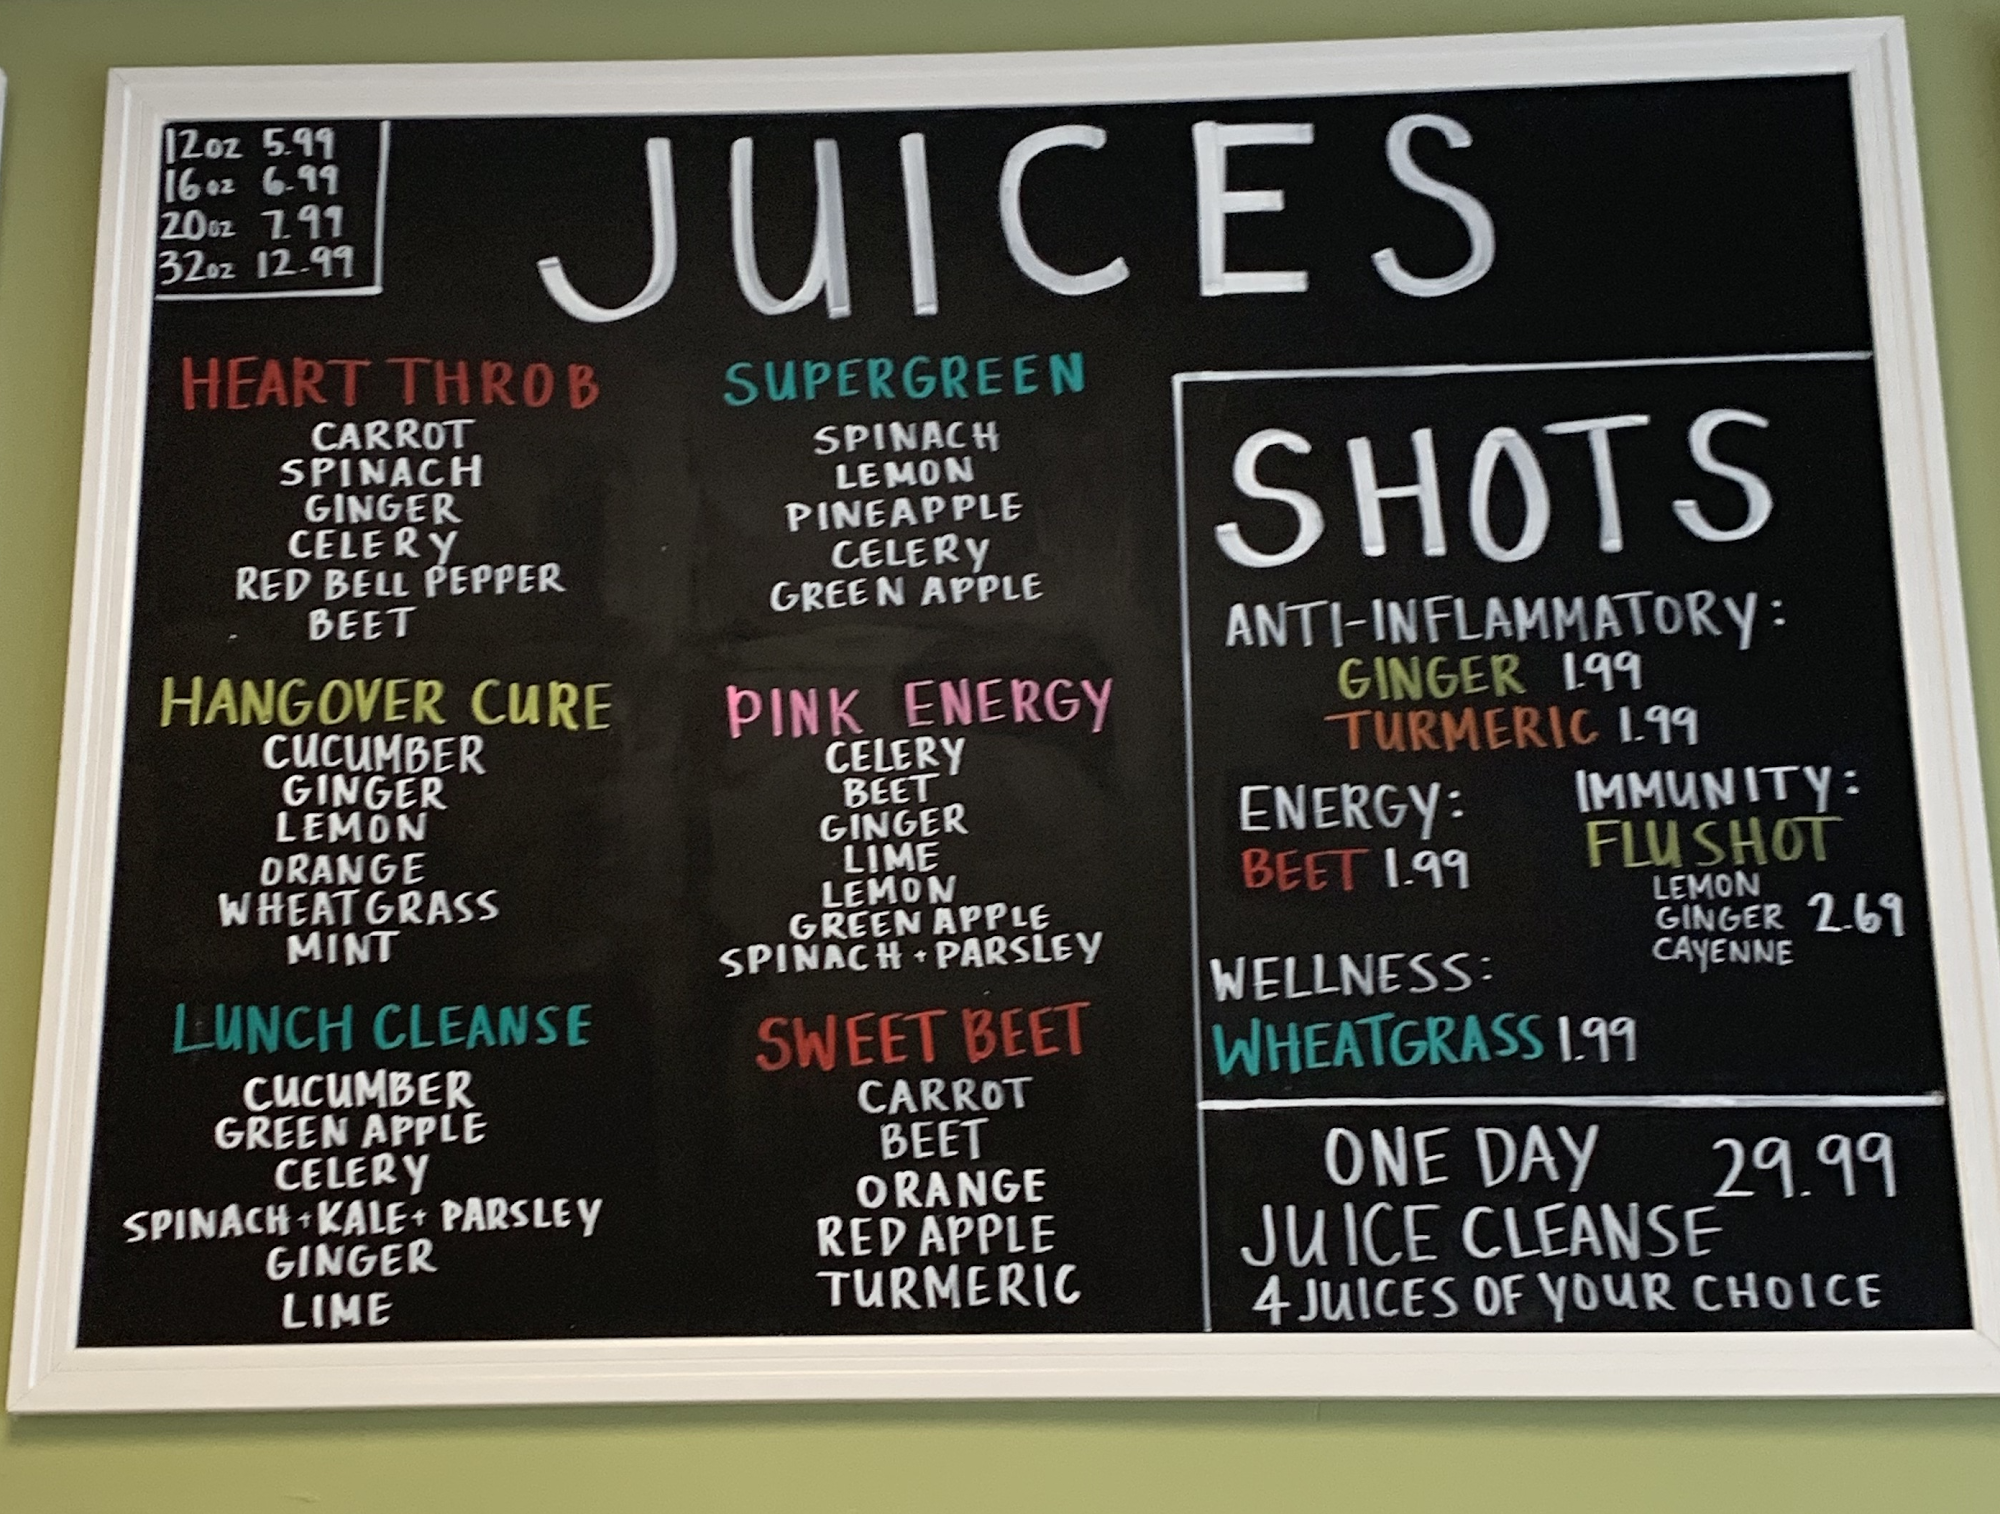 12oz 5.99
16oz 6.99
20oz 7.99
32oz 12.99
JUICES
HEART THROB
CARROT
SPINACH
GINGER
CELERY
RED BELL PEPPER
BEET
HANGOVER CURE
CUCUMBER
GINGER
LEMON
ORANGE
WHEATGRASS
MINT
LUNCH CLEANSE
CUCUMBER
GREEN APPLE
CELERY
SPINACH + KALE + PARSLEY
GINGER
LIME
SUPERGREEN
SPINACH
LEMON
PINEAPPLE
CELERY
GREEN APPLE
PINK ENERGY
CELERY
BEET
GINGER
LIME
LEMON
GREEN APPLE
SPINACH + PARSLEY
SWEET BEET
CARROT
BEET
ORANGE
RED APPLE
TURMERIC
SHOTS
ANTI-INFLAMMATORY:
GINGER 1.99
TURMERIC 1.99
ENERGY:
BEET 1.99
IMMUNITY:
FLU SHOT
LEMON
GINGER 2.69
CAYENNE
WELLNESS:
WHEATGRASS 1.99
ONE DAY 29.99
JUICE CLEANSE
4 JUICES OF YOUR CHOICE